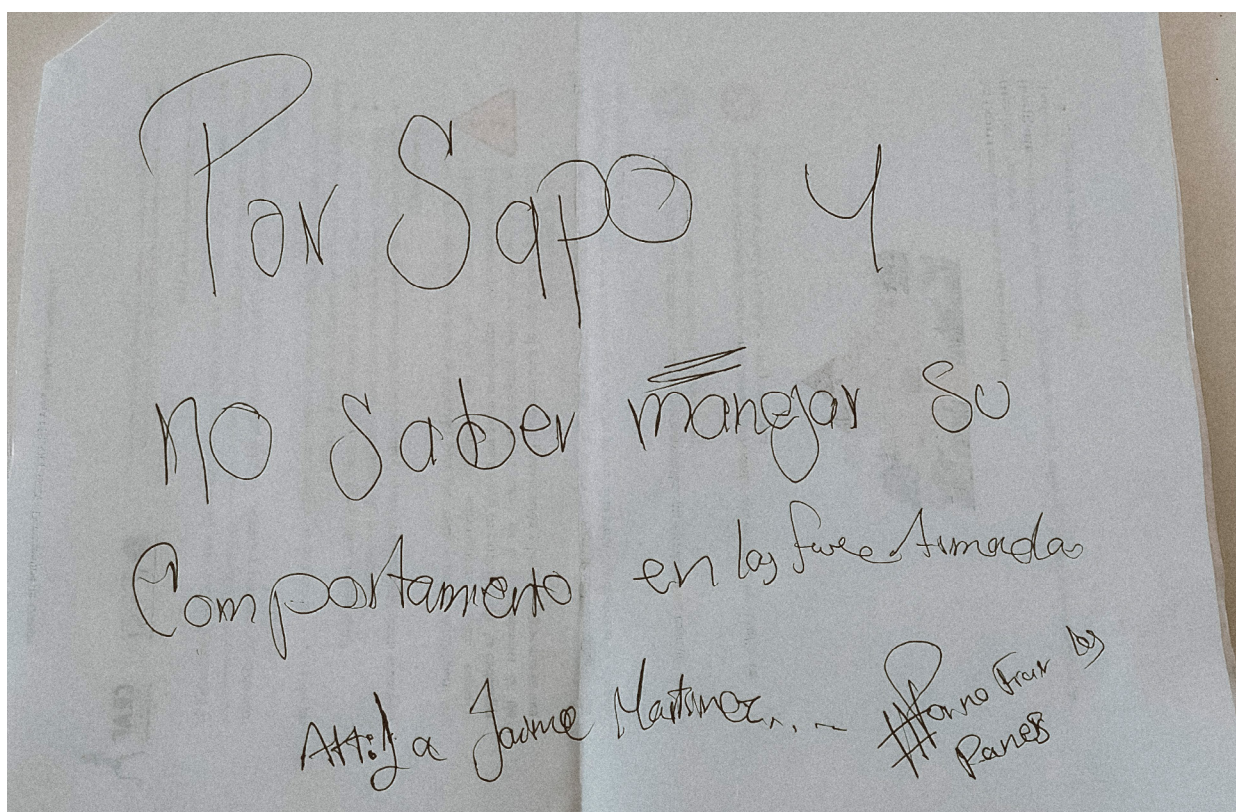 Por Sapo y
no Saber manejar su
Comportamiento en las fuerz Armadas
Att: Jaime Martinez...-
#Por no traer los
panes